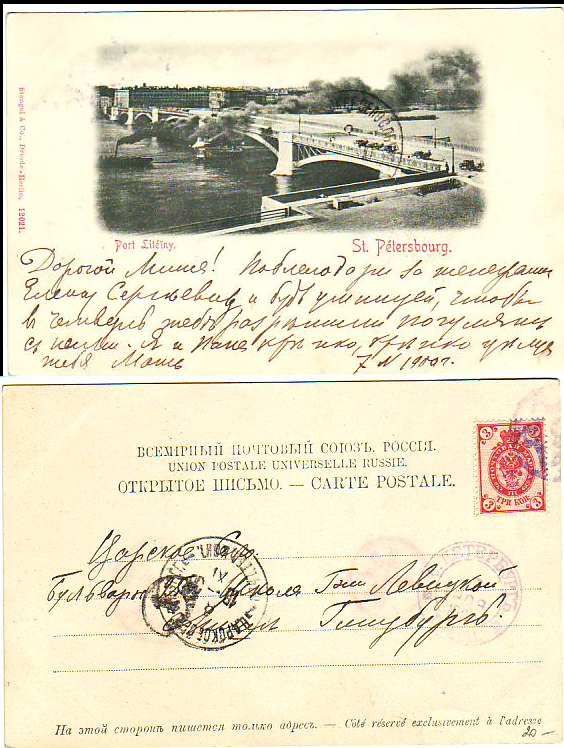 Stengel & Co., Dresde-Berlin, 12021.
Port Litéiny.
St. Pétersbourg.
Дорогой Миша! Поблагодари за
Елену Сергѣевну и будь умницей, чтобы
въ четвергъ тебѣ разрѣшили погулять
съ нами. Я и Папа крѣпко, крѣпко цѣлуемъ
тебя Мать 7 XI 1900 г.
ВСЕМІРНЫЙ ПОЧТОВЫЙ СОЮЗЪ. РОССІЯ.
UNION POSTALE UNIVERSELLE RUSSIE.
ОТКРЫТОЕ ПИСЬМО. — CARTE POSTALE.
3 3
ТРИ КОП.
3 3
Царское Село
Бульварная школа Левицкой
Гинзбургъ.
На этой сторонѣ пишется только адресъ. — Côté réservé exclusivement à l'adresse
20 —